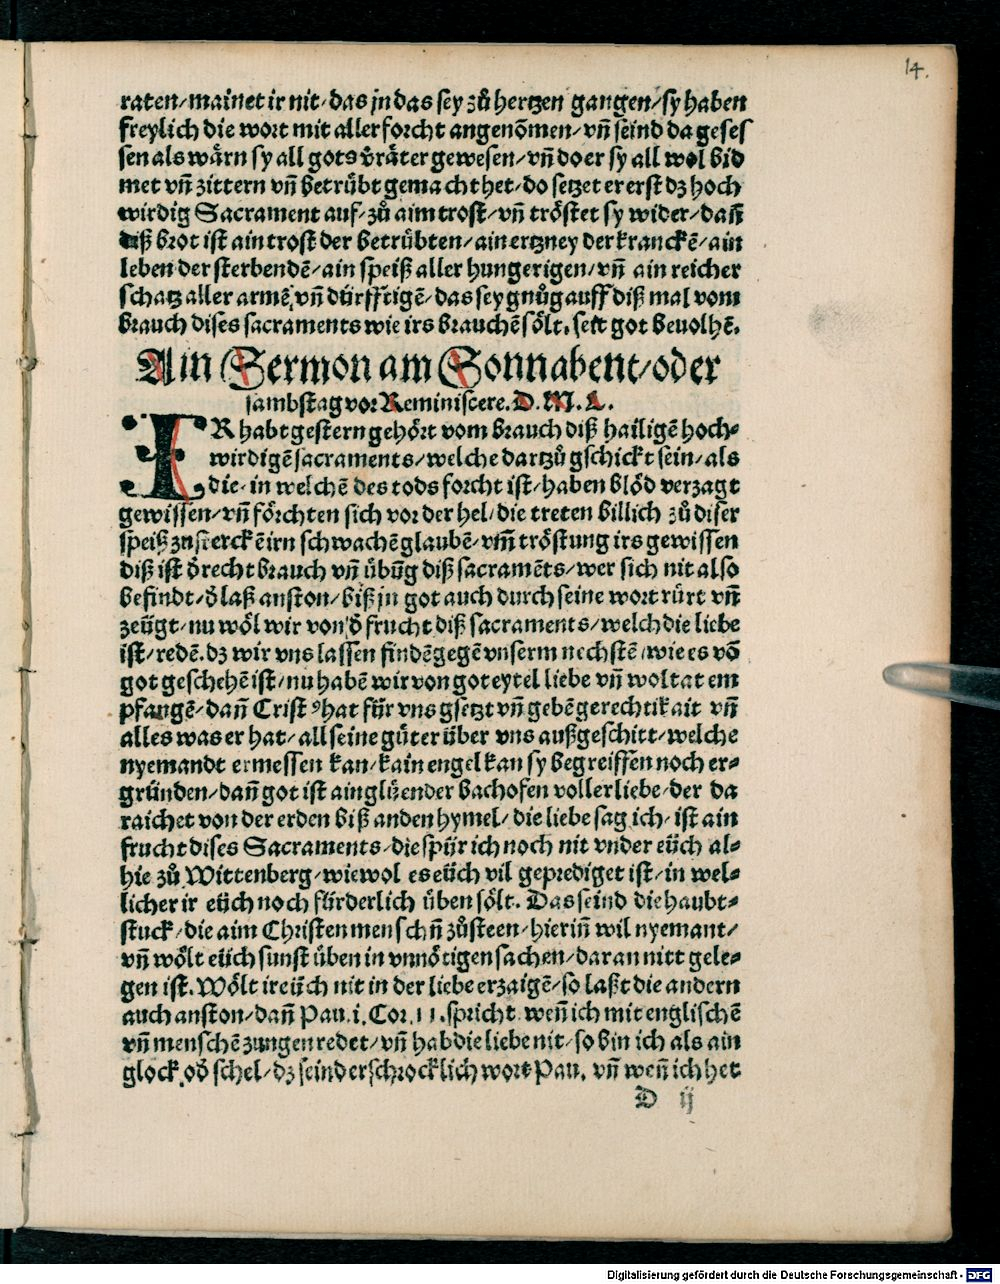 14.
raten/ mainet ir nit/ das jn das sey zů hertzen gangen/ sy haben
freylich die wort mit aller forcht angenōmen/ vn̄ seind da gesef
sen als wårn sy all gotꝯ v̄råter gewesen/ vn̄ do er sy all wol bid
met vn̄ zittern vn̄ betrůbt gemacht het/ do setzet er erst dz hoch
wirdig Sacrament auf/ zů aim trost/ vn̄ trőstet sy wider/ dañ
diß brot ist ain trost der betrůbten/ ain ertzney der kranckē/ ain
leben der sterbendē/ ain speiß aller hungerigen/ vn̄ ain reicher
schatz aller armē/ vn̄ dürfftigē/ das sey gnůg auff diß mal vom
brauch dises sacraments wie irs brauchē sőlt. seit got beuolhē.
Ain Sermon am Sonnabent/ oder
sambstag vor Reminiscere. D. M. L.
IR habt gestern gehőrt vom brauch diß hailigē hoch⸗
wirdigē sacraments/ welche dartzů gschickt sein/ als
die/ in welchē des tods forcht ist/ haben blőd verzagt
gewissen/ vn̄ főrchten sich vor der hel/ die treten billich zů diser
speiß zu sterckē irn schwachē glaubē/ vn̄ trőstung irs gewissen
diß ist d̄ recht brauch vn̄ übūg diß sacramēts/ wer sich nit also
befindt/ d̄ laß anston/ biß jn got auch durch seine wort rürt vn̄
zeügt/ nu wől wir von d̄ frucht diß sacraments/ welch die liebe
ist/ redē. dz wir vns lassen findē gegē vnserm nechstē/ wie es vō
got geschehē ist/ nu habē wir von got eytel liebe vn̄ woltat em
pfangē/ dañ Cristꝰ hat für vns gsetzt vn̄ gebē gerechtikait vn̄
alles was er hat/ all seine gůter über vns außgeschitt/ welche
nyemandt ermessen kan/ kain engel kan sy begreiffen noch er⸗
gründen/ dañ got ist ain glüender bachofen voller liebe/ der da
raichet von der erden biß an den hymel/ die liebe sag ich/ ist ain
frucht dises Sacraments/ die spür ich noch nit vnder eüch al⸗
hie zů Wittenberg/ wiewol es eüch vil geprediget ist/ in wel⸗
licher ir eüch noch fürderlich üben sőlt. Das seind die haubt⸗
stuck/ die aim Christen menschñ zůsteen/ hieriñ wil nyemant/
vn̄ wőlt eüch sunst üben in vnnőtigen sachen/ daran nitt gele⸗
gen ist. Wőlt ir eüch nit in der liebe erzaigē/ so laßt die andern
auch anston/ dañ Pau. i. Cor. 11. spricht weñ ich mit englischē
vn̄ menschē zungen redet/ vn̄ hab die liebe nit/ so bin ich als ain
glock. od̄ schel/ dz seind erschrocklich wort Pau. vn̄ weñ ich het
D ij
Digitalisierung gefördert durch die Deutsche Forschungsgemeinschaft - DFG